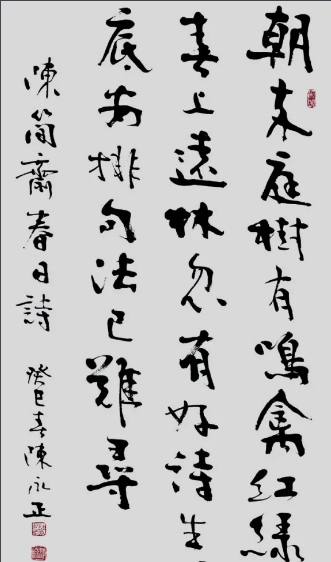 朝来庭樹有鳴禽紅綠
春上遠林忽有好詩生
底安排句法已難尋
陳簡齋春日詩 癸巳春陳永正